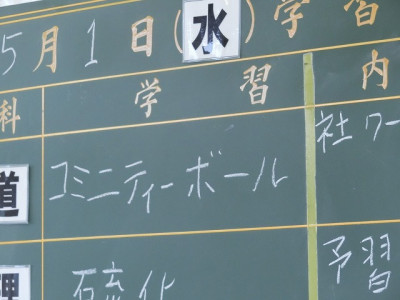 5月1日(水)学習
科 学習 内
道 コミニティーボール 社ワー
理 硫化 予習